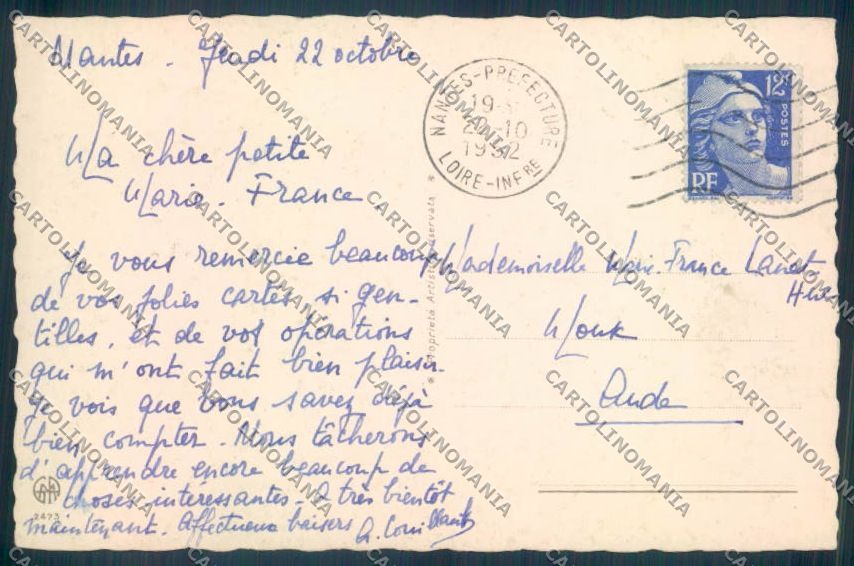 Nantes - Jeudi 22 octobre
Ma chère petite
Marie-France
Je vous remercie beaucoup
de vos jolies cartes si gen-
tilles, et de vos opérations
qui m'ont fait bien plaisir.
Je vois que vous savez déjà
bien compter. Nous tâcherons
d'apprendre encore beaucoup de
choses intéressantes - A très bientôt
maintenant. Affectueux baisers A.
2473
* Proprietà Artistica Riservata *
NANTES-PRÉFECTURE
19
10
1952
LOIRE-INFRE
12F
POSTES
RF
Mademoiselle Marie-France
Mouk
Aude
CARTOLINOMANIA